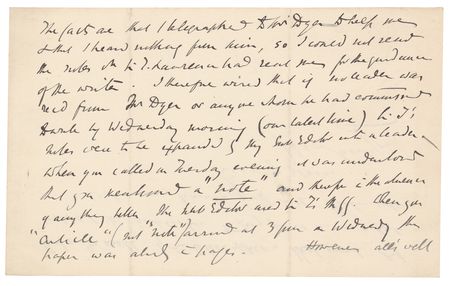 The facts are that I telegraphed to Mr Dyer to help me
& that I heard nothing from him, so I could not send
the notes Sir T. Lawrence had sent me for the guidance
of the writer. I therefore wired that if no leader was
rec'd from Mr Dyer or anyone whom he had commissioned
to write by Wednesday morning (our latest time) Sir T's
notes were to be expanded by my Sub Editor into a leader
When you called on Tuesday evening it was understood
that you were to send a "note" and therefore in the absence
of anything else the Sub Editor used Sir T's
"article" (not "note") arrived at 3 p.m. on Wednesday the
paper was already to pages. However all's well